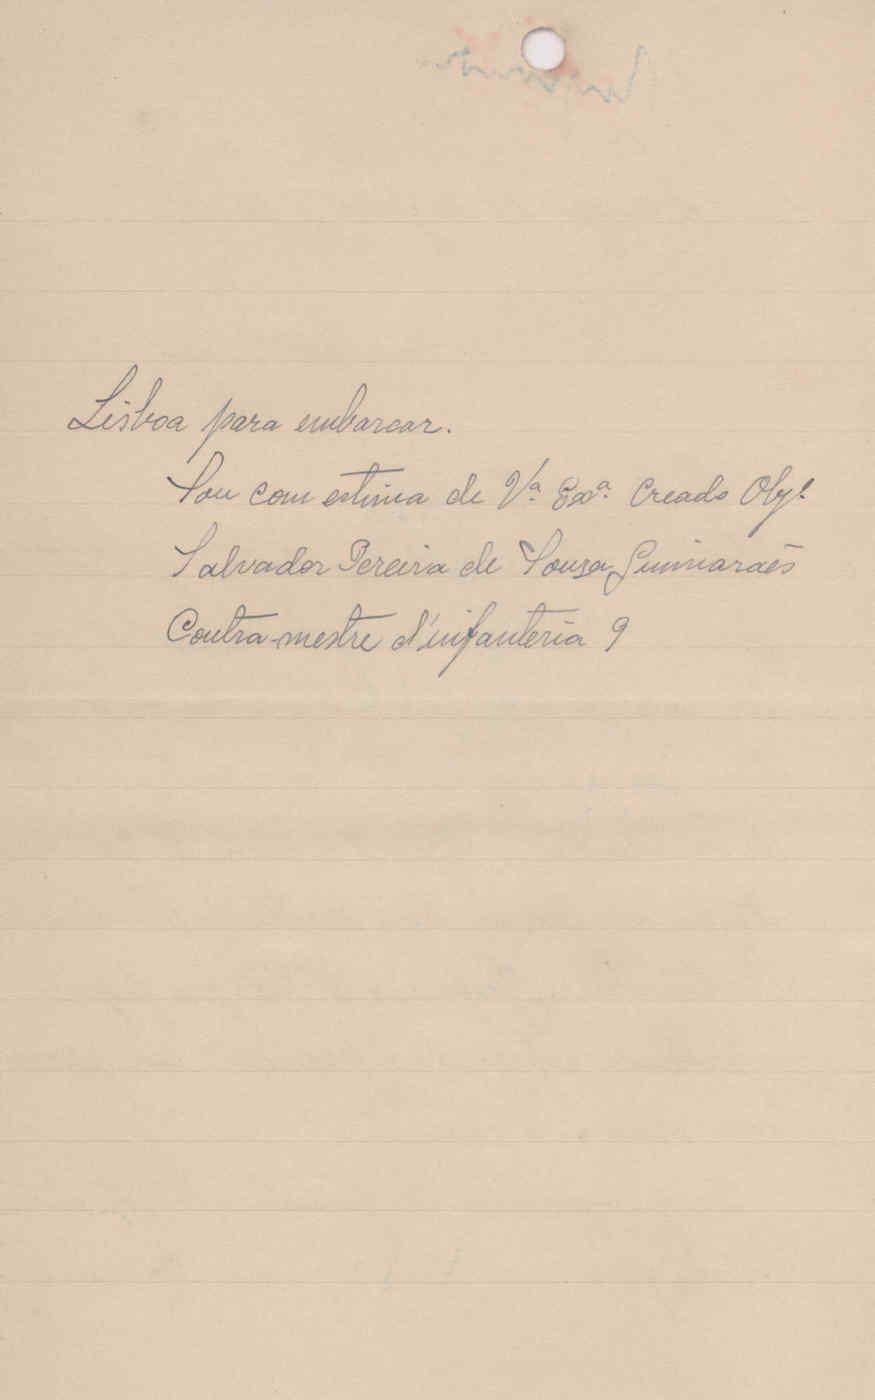 Lisboa para embarcar.
Sou com estima de Vª. Exª. Creado Obgº
Salvador Pereira de Souza Guimarães
Contra-mestre d'infanteria 9